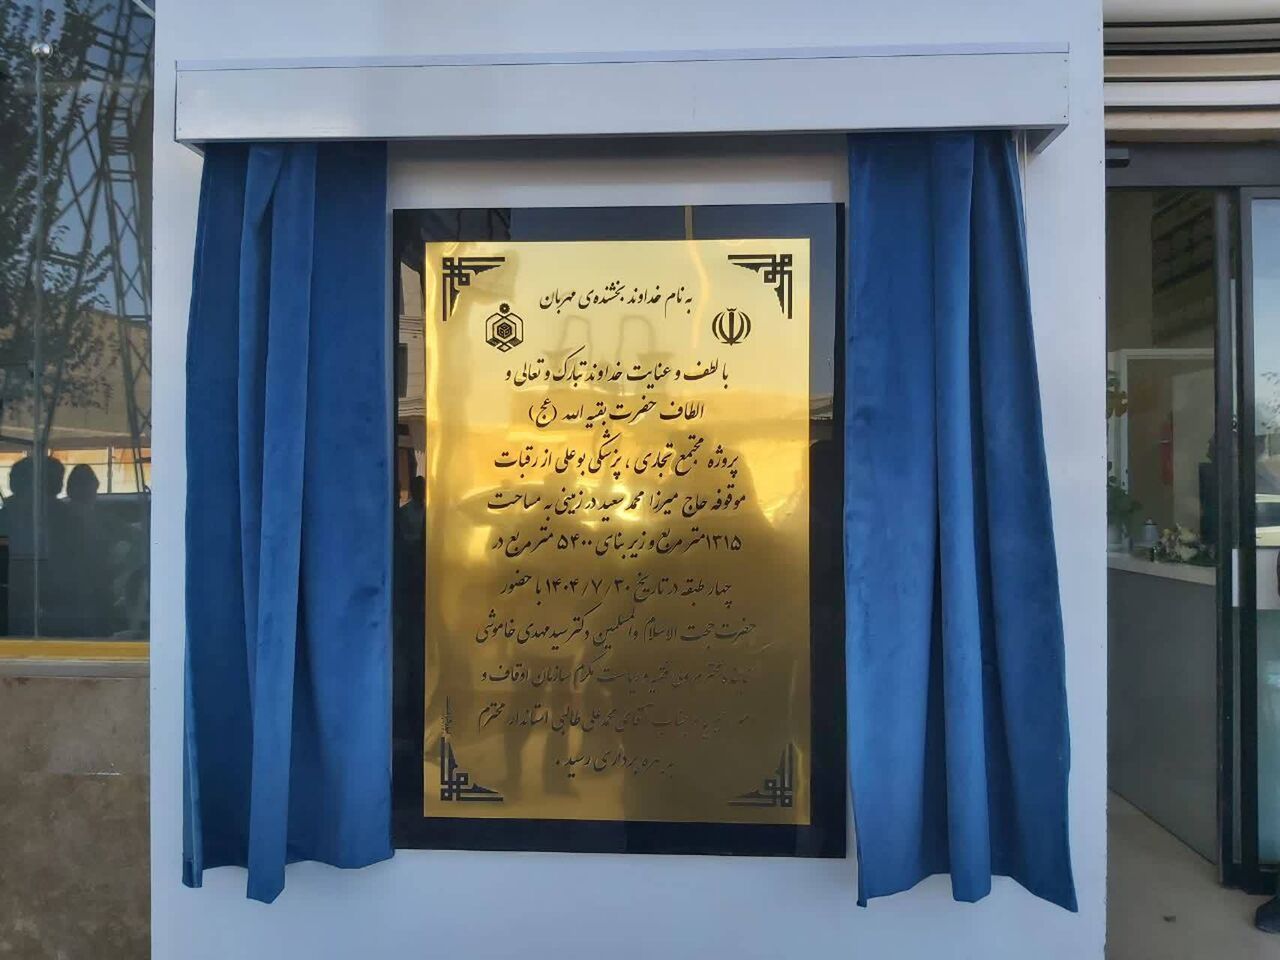 به نام خداوند بخشنده‌ی مهربان
با لطف و عنایت خداوند تبارک و تعالی و
الطاف حضرت بقیه الله (عج)
پروژه مجتمع تجاری ، پزشکی بوعلی از رقبات
موقوفه حاج میرزا محمد سعید در زمینی به مساحت
۱۳۱۵ متر مربع و زیر بنای ۵۴۰۰ متر مربع در
چهار طبقه در تاریخ ۱۴۰۴/۷/۳۰ با حضور
حضرت حجت الاسلام والمسلمین دکتر سید مهدی خاموشی
نماینده محترم ولی فقیه و ریاست مکرم سازمان اوقاف و
امور خیریه و جناب آقای محمد علی طالبی استاندار محترم
به بهره برداری رسید .